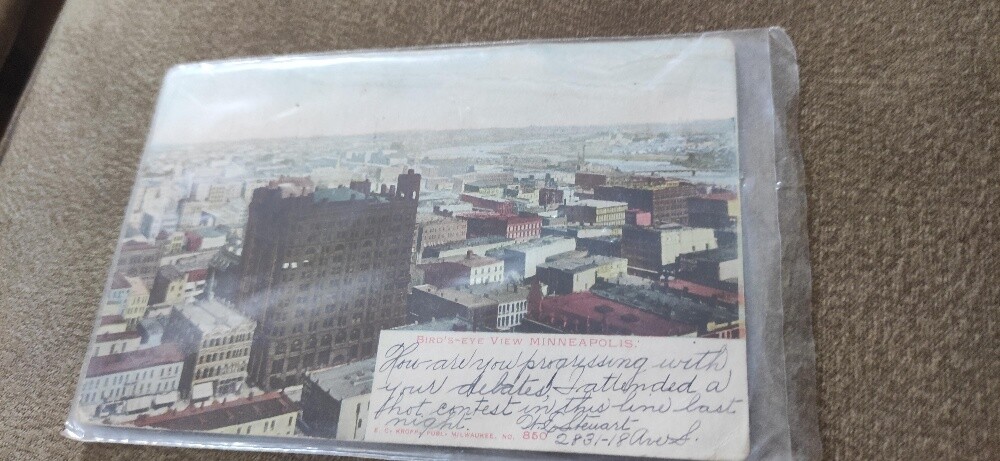 BIRD'S-EYE VIEW MINNEAPOLIS.
How are you progressing with
your debates, I attended a
hot contest in this line last
night. Stewart
E. C. KROPP, PUBL. MILWAUKEE, NO. 850
2831-18 Av S.